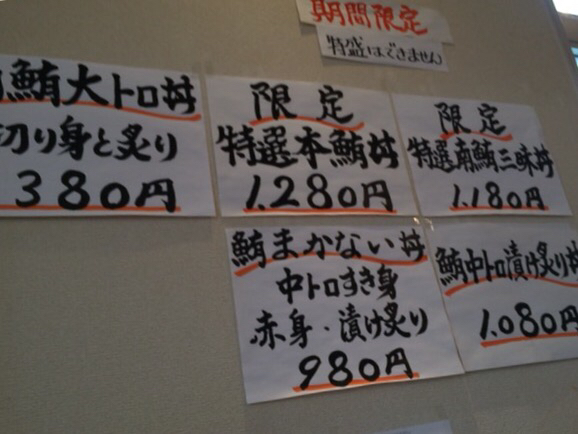 期間限定
特盛はできません
鮪大トロ丼
切り身と炙り
380円
限定
特選本鮪丼
1,280円
限定
特選南鮪三昧丼
1,180円
鮪まかない丼
中トロすき身
赤身・漬け炙り
980円
鮪中トロ漬け炙り丼
1,080円